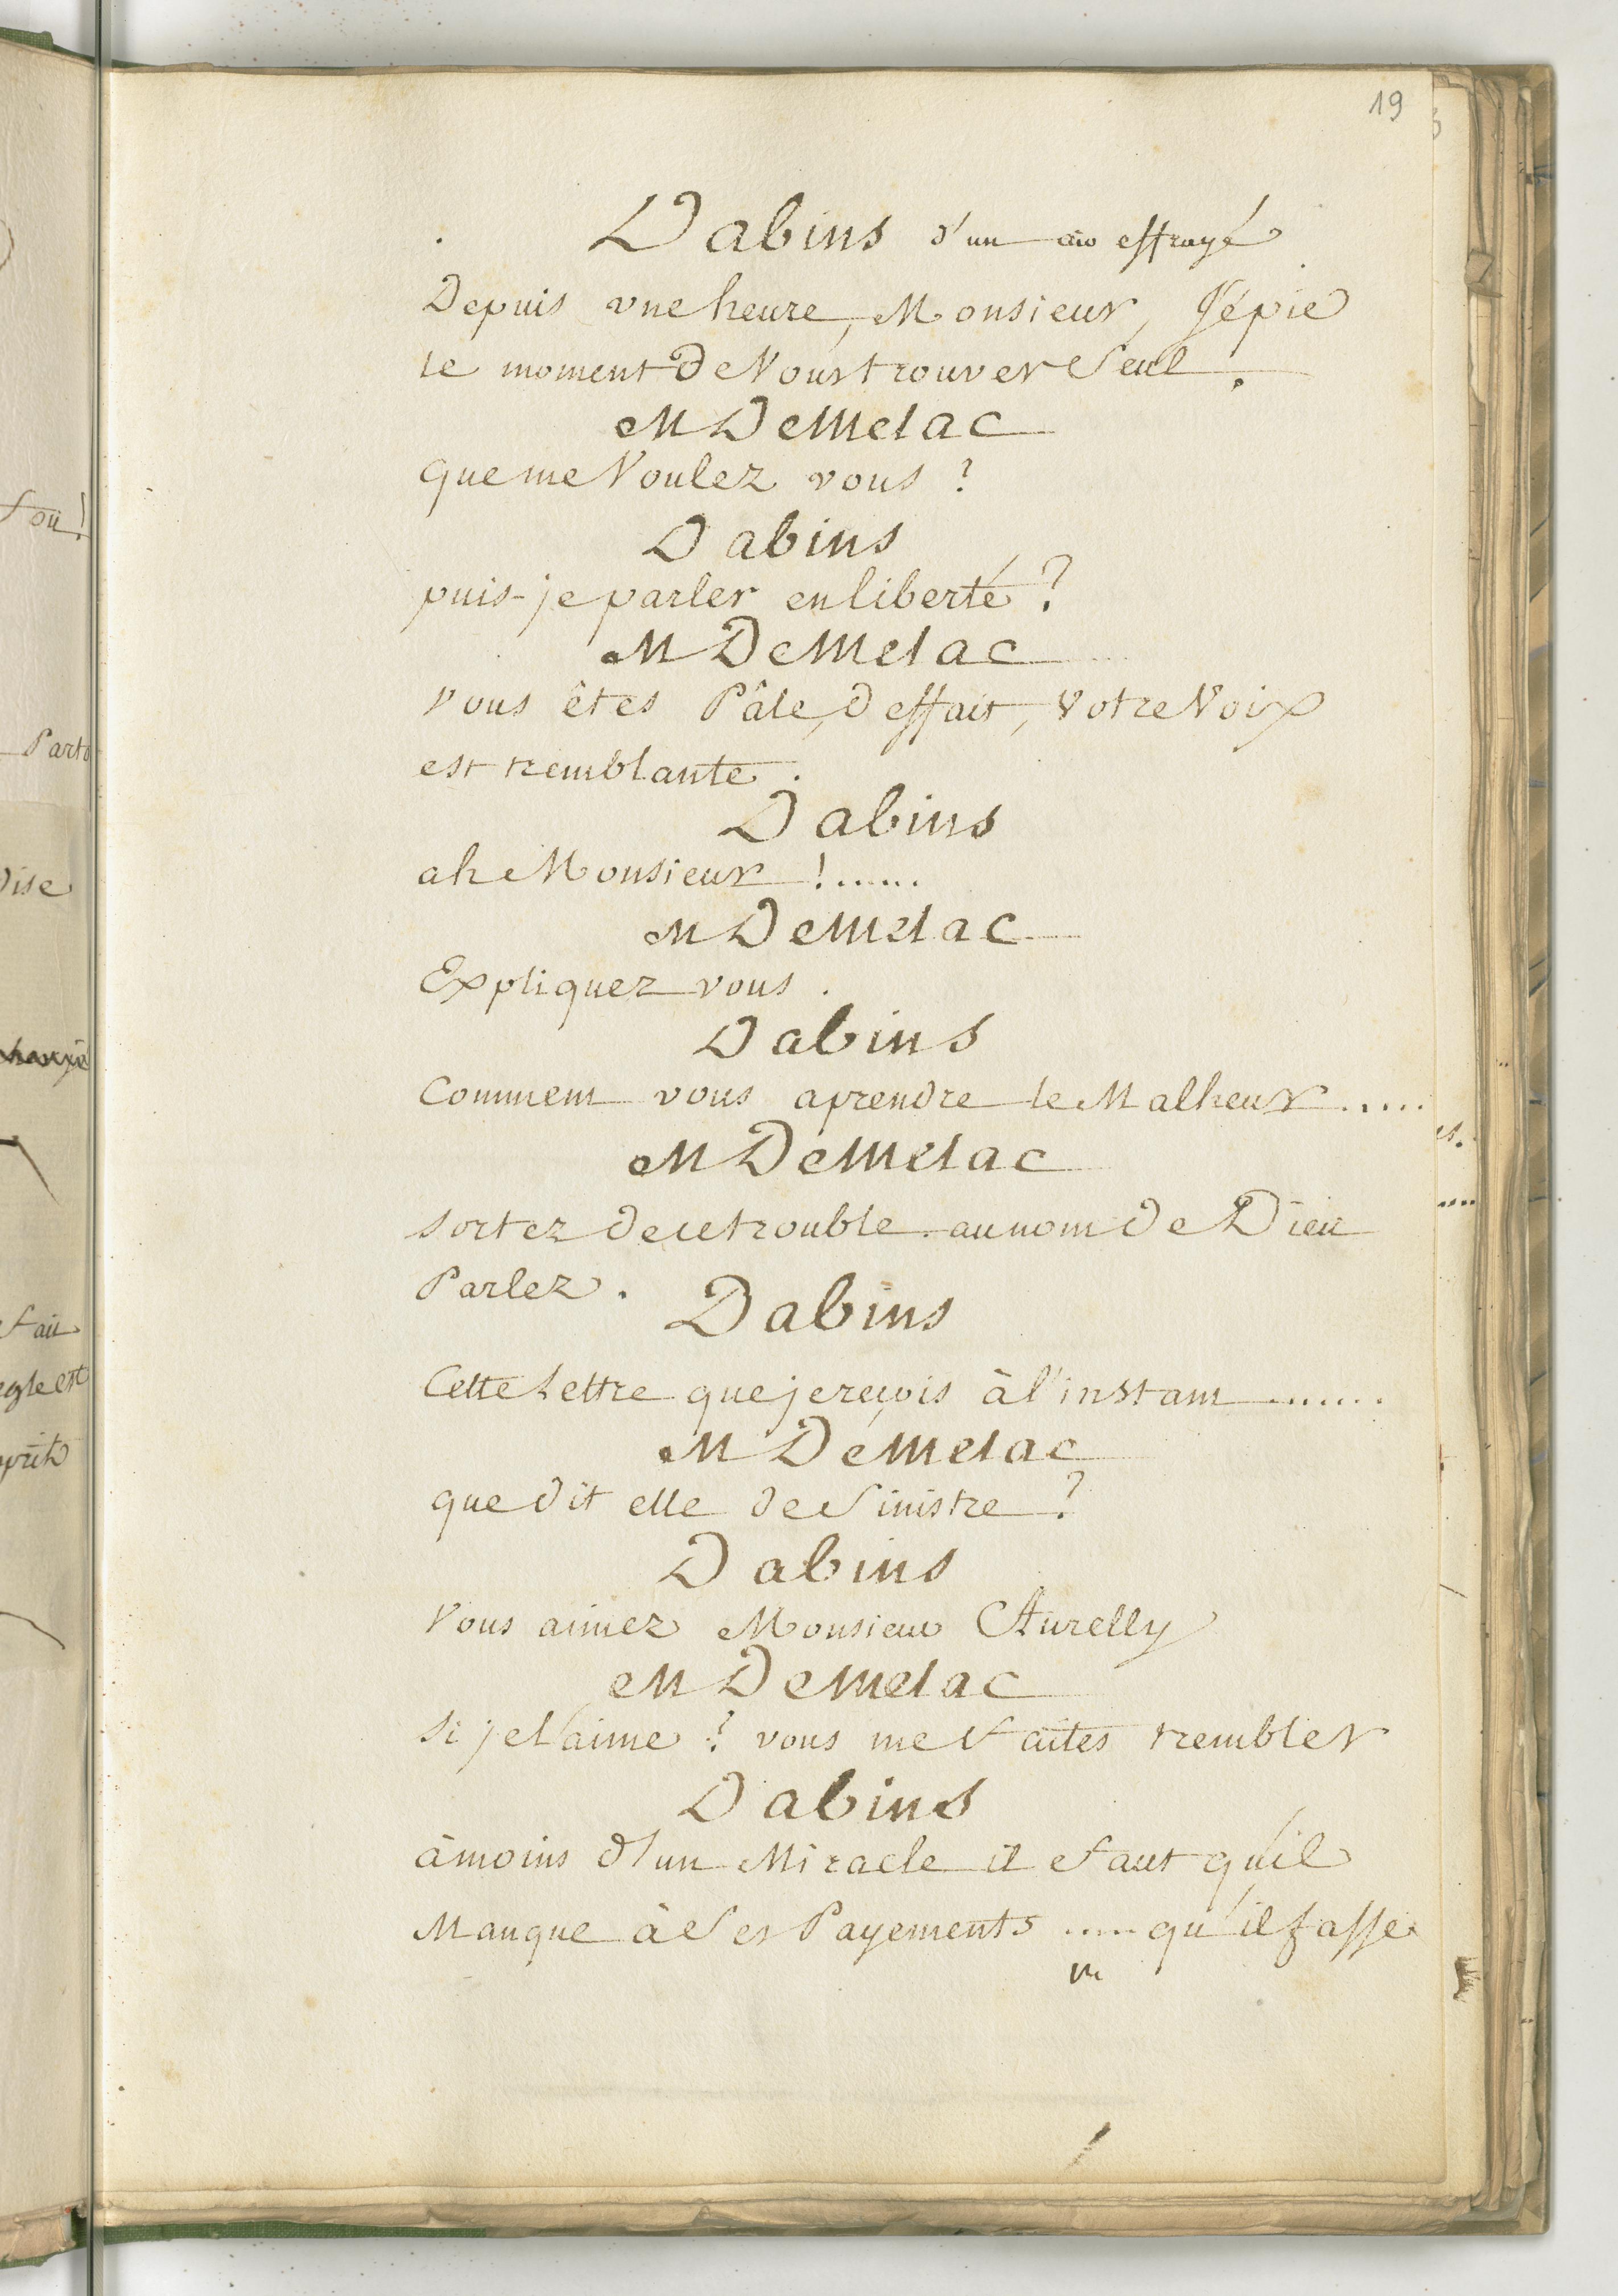 19
Dabins d'un air effrayé
Depuis vne heure, Monsieur, J'épie
le moment de Vous trouver Seul.
M De Melac
que me Voulez vous ?
Dabins
puis-je parler en liberté ?
M De Melac
Vous êtes Pâle, deffait, Votre Voix
est tremblante.
Dabins
ah Monsieur !......
M De Melac
Expliquez vous.
Dabins
Comment vous aprendre le Malheur.....
M De Melac
sortez de ce trouble au nom de Dieu
Parlez.
Dabins
Cette Lettre que je reçois à l'instant.......
M De Melac
que dit elle de Sinistre ?
Dabins
Vous aimez Monsieur Aurelly
M De Melac
Si je l'aime ? vous me faites trembler
Dabins
à moins d'un Miracle il faut qu'il
Manque à Ses Payements .....qu'il fasse